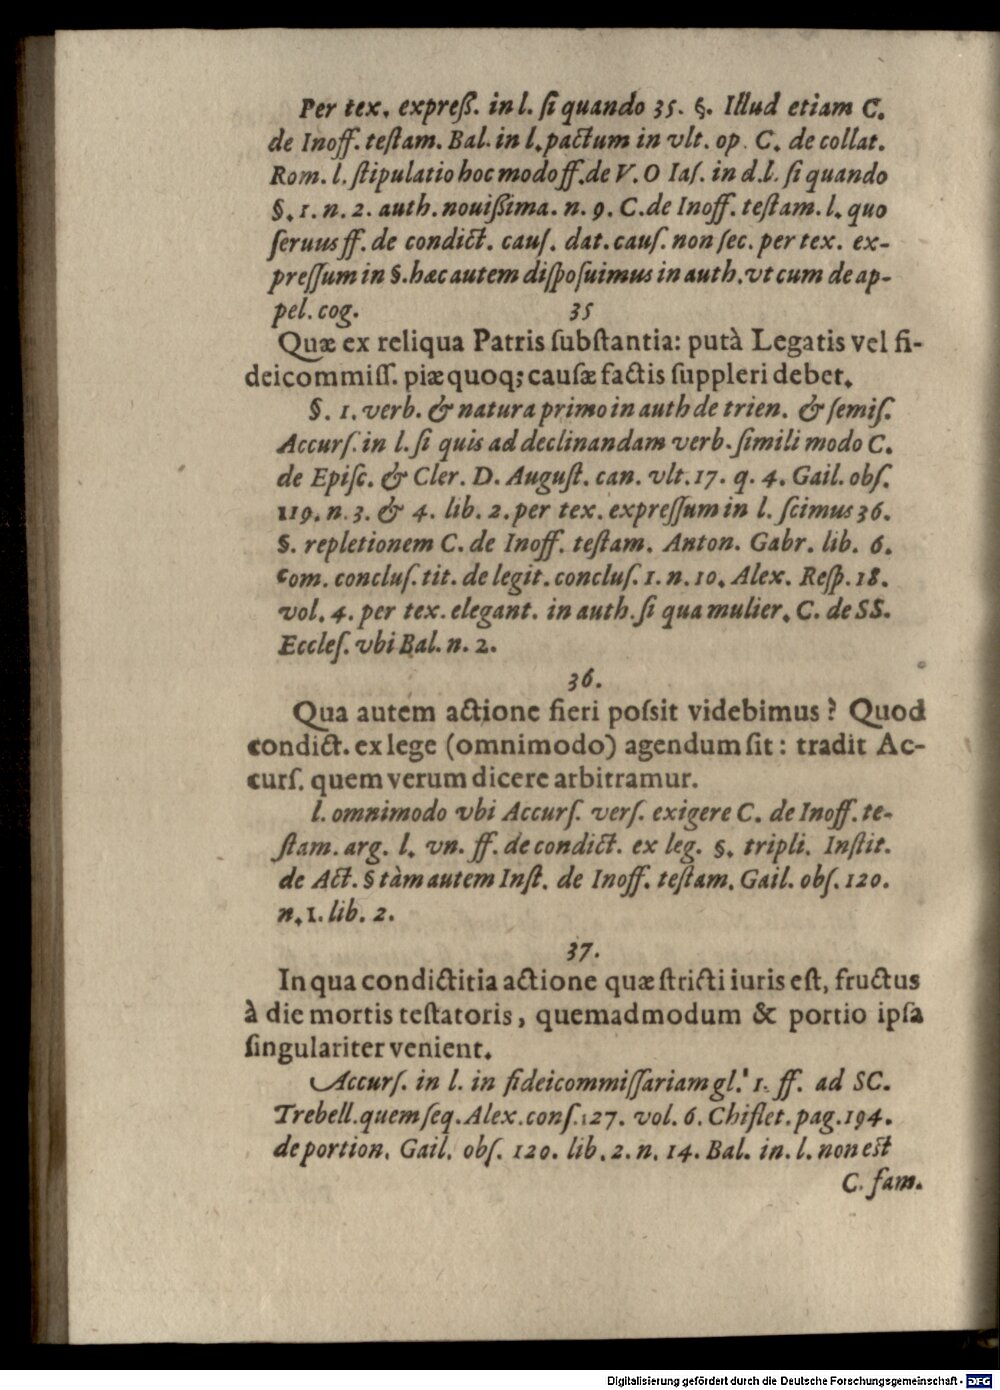 Per tex. expreß. in l. ſi quando 35. §. Illud etiam C.
de Inoff. teſtam. Bal. in l. pactum in vlt. op. C. de collat.
Rom. l. ſtipulatio hoc modo ff. de V. O Iaſ. in d. l. ſi quando
§. 1. n. 2. auth. nouißima. n. 9. C. de Inoff. teſtam. l. quo
ſeruus ff. de condict. cauſ. dat. cauſ. non ſec. per tex. ex-
preſſum in §. hæc autem diſpoſuimus in auth. vt cum de ap-
pel. cog.
35
Quæ ex reliqua Patris ſubſtantia: putà Legatis vel fi-
deicommiſſ. piæ quoq; cauſæ factis ſuppleri debet.
§. 1. verb. & natura primo in auth de trien. & ſemiſ.
Accurſ. in l. ſi quis ad declinandam verb. ſimili modo C.
de Epiſc. & Cler. D. Auguſt. can. vlt. 17. q. 4. Gail. obſ.
119. n. 3. & 4. lib. 2. per tex. expreſſum in l. ſcimus 36.
§. repletionem C. de Inoff. teſtam. Anton. Gabr. lib. 6.
Com. concluſ. tit. de legit. concluſ. 1. n. 10. Alex. Reſp. 18.
vol. 4. per tex. elegant. in auth. ſi qua mulier. C. de SS.
Eccleſ. vbi Bal. n. 2.
36.
Qua autem actione fieri poſsit videbimus? Quod
condict. ex lege (omnimodo) agendum ſit: tradit Ac-
curſ. quem verum dicere arbitramur.
l. omnimodo vbi Accurſ. verſ. exigere C. de Inoff. te-
ſtam. arg. l. vn. ff. de condict. ex leg. §. tripli. Inſtit.
de Act. § tàm autem Inſt. de Inoff. teſtam. Gail. obſ. 120.
n. 1. lib. 2.
37.
In qua condictitia actione quæ ſtricti iuris eſt, fructus
à die mortis teſtatoris, quemadmodum & portio ipſa
ſingulariter venient.
Accurſ. in l. in fideicommiſſariam gl. 1. ff. ad SC.
Trebell. quem ſeq. Alex. conſ. 127. vol. 6. Chiflet. pag. 194.
de portion. Gail. obſ. 120. lib. 2. n. 14. Bal. in. l. non est
C. fam.
Digitalisierung gefördert durch die Deutsche Forschungsgemeinschaft - DFG